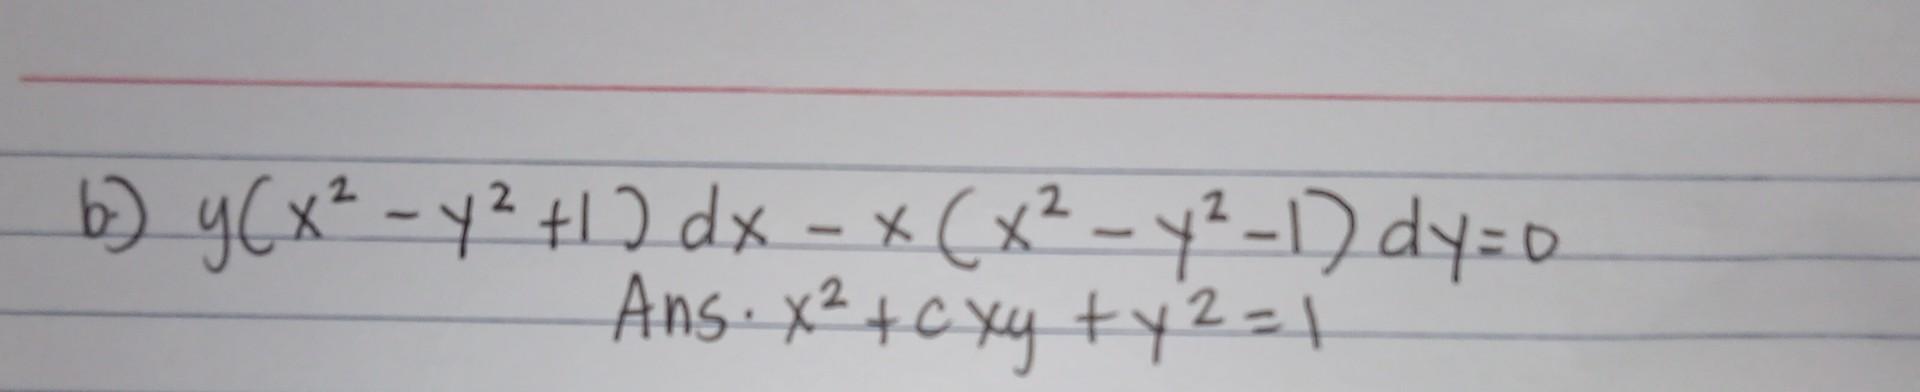 b) y(x² - y² +1) dx - x (x² - y² - 1) dy = 0
Ans. x² + cxy + y² = 1